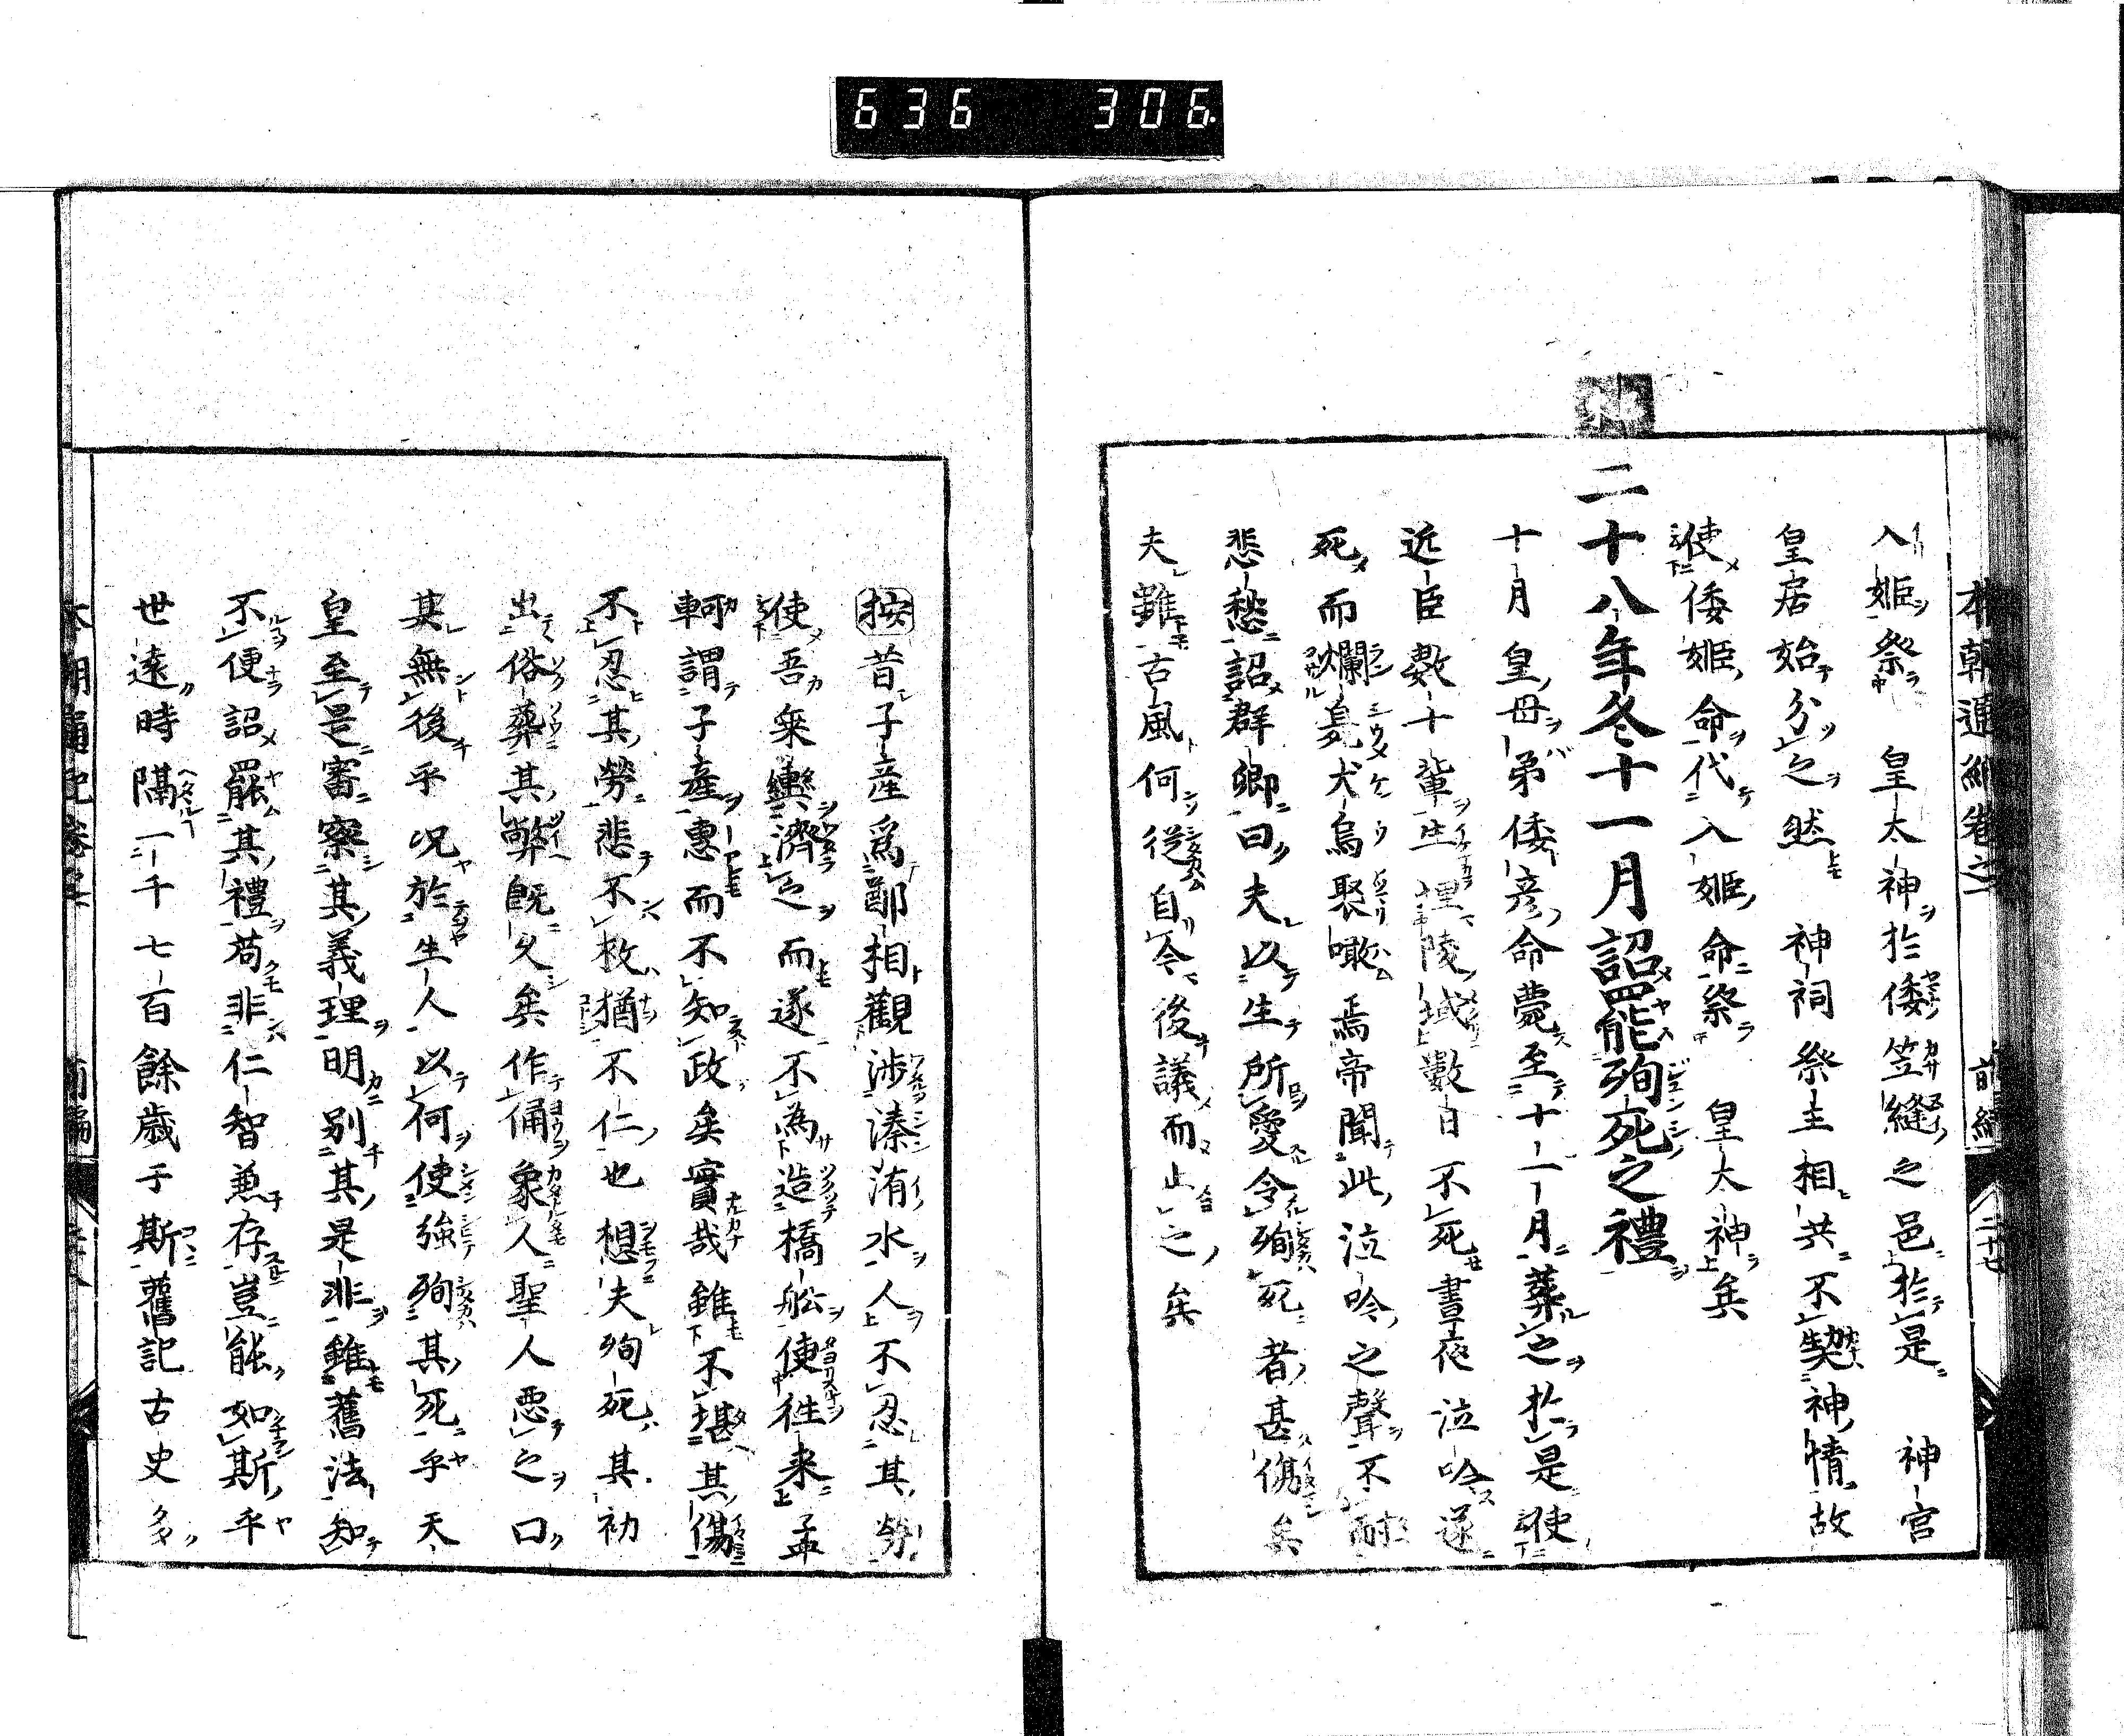 636 306
本朝通紀卷之二 前編 二十七
入姬祭 皇太神於倭笠縫之邑於是 神宮
皇居始分之然 神祠祭主相共不契神情故
使倭姬命代入姬命祭 皇太神矣
二十八年冬十一月詔罷殉死之禮
十月皇母弟倭彦命薨至十一月葬之於是使
近臣數十輩生埋陵域數日不死晝夜泣吟遂
死而爛臰犬烏聚噉焉帝聞此泣吟之聲不耐
悲愁詔群卿曰夫以生所愛令殉死者甚傷矣
夫雖古風何從自今後議而止之矣
按昔子產爲鄭相觀涉溱洧水人不忍其勞
使吾乗輿濟之而遂不為造橋舩使徃来孟
軻謂子產惠而不知政矣實哉雖不堪其傷
不忍其勞悲不救猶不仁也想夫殉死其初
出俗葬其弊既久矣作俑象人聖人惡之曰
其無後乎况於生人以何使強殉其死乎天
皇至是審察其義理明別其是非雖舊法知
不便詔罷其禮苟非仁智兼存豈能如斯乎
世遠時隔一千七百餘歳于斯舊記古史多
本朝通紀卷 前編